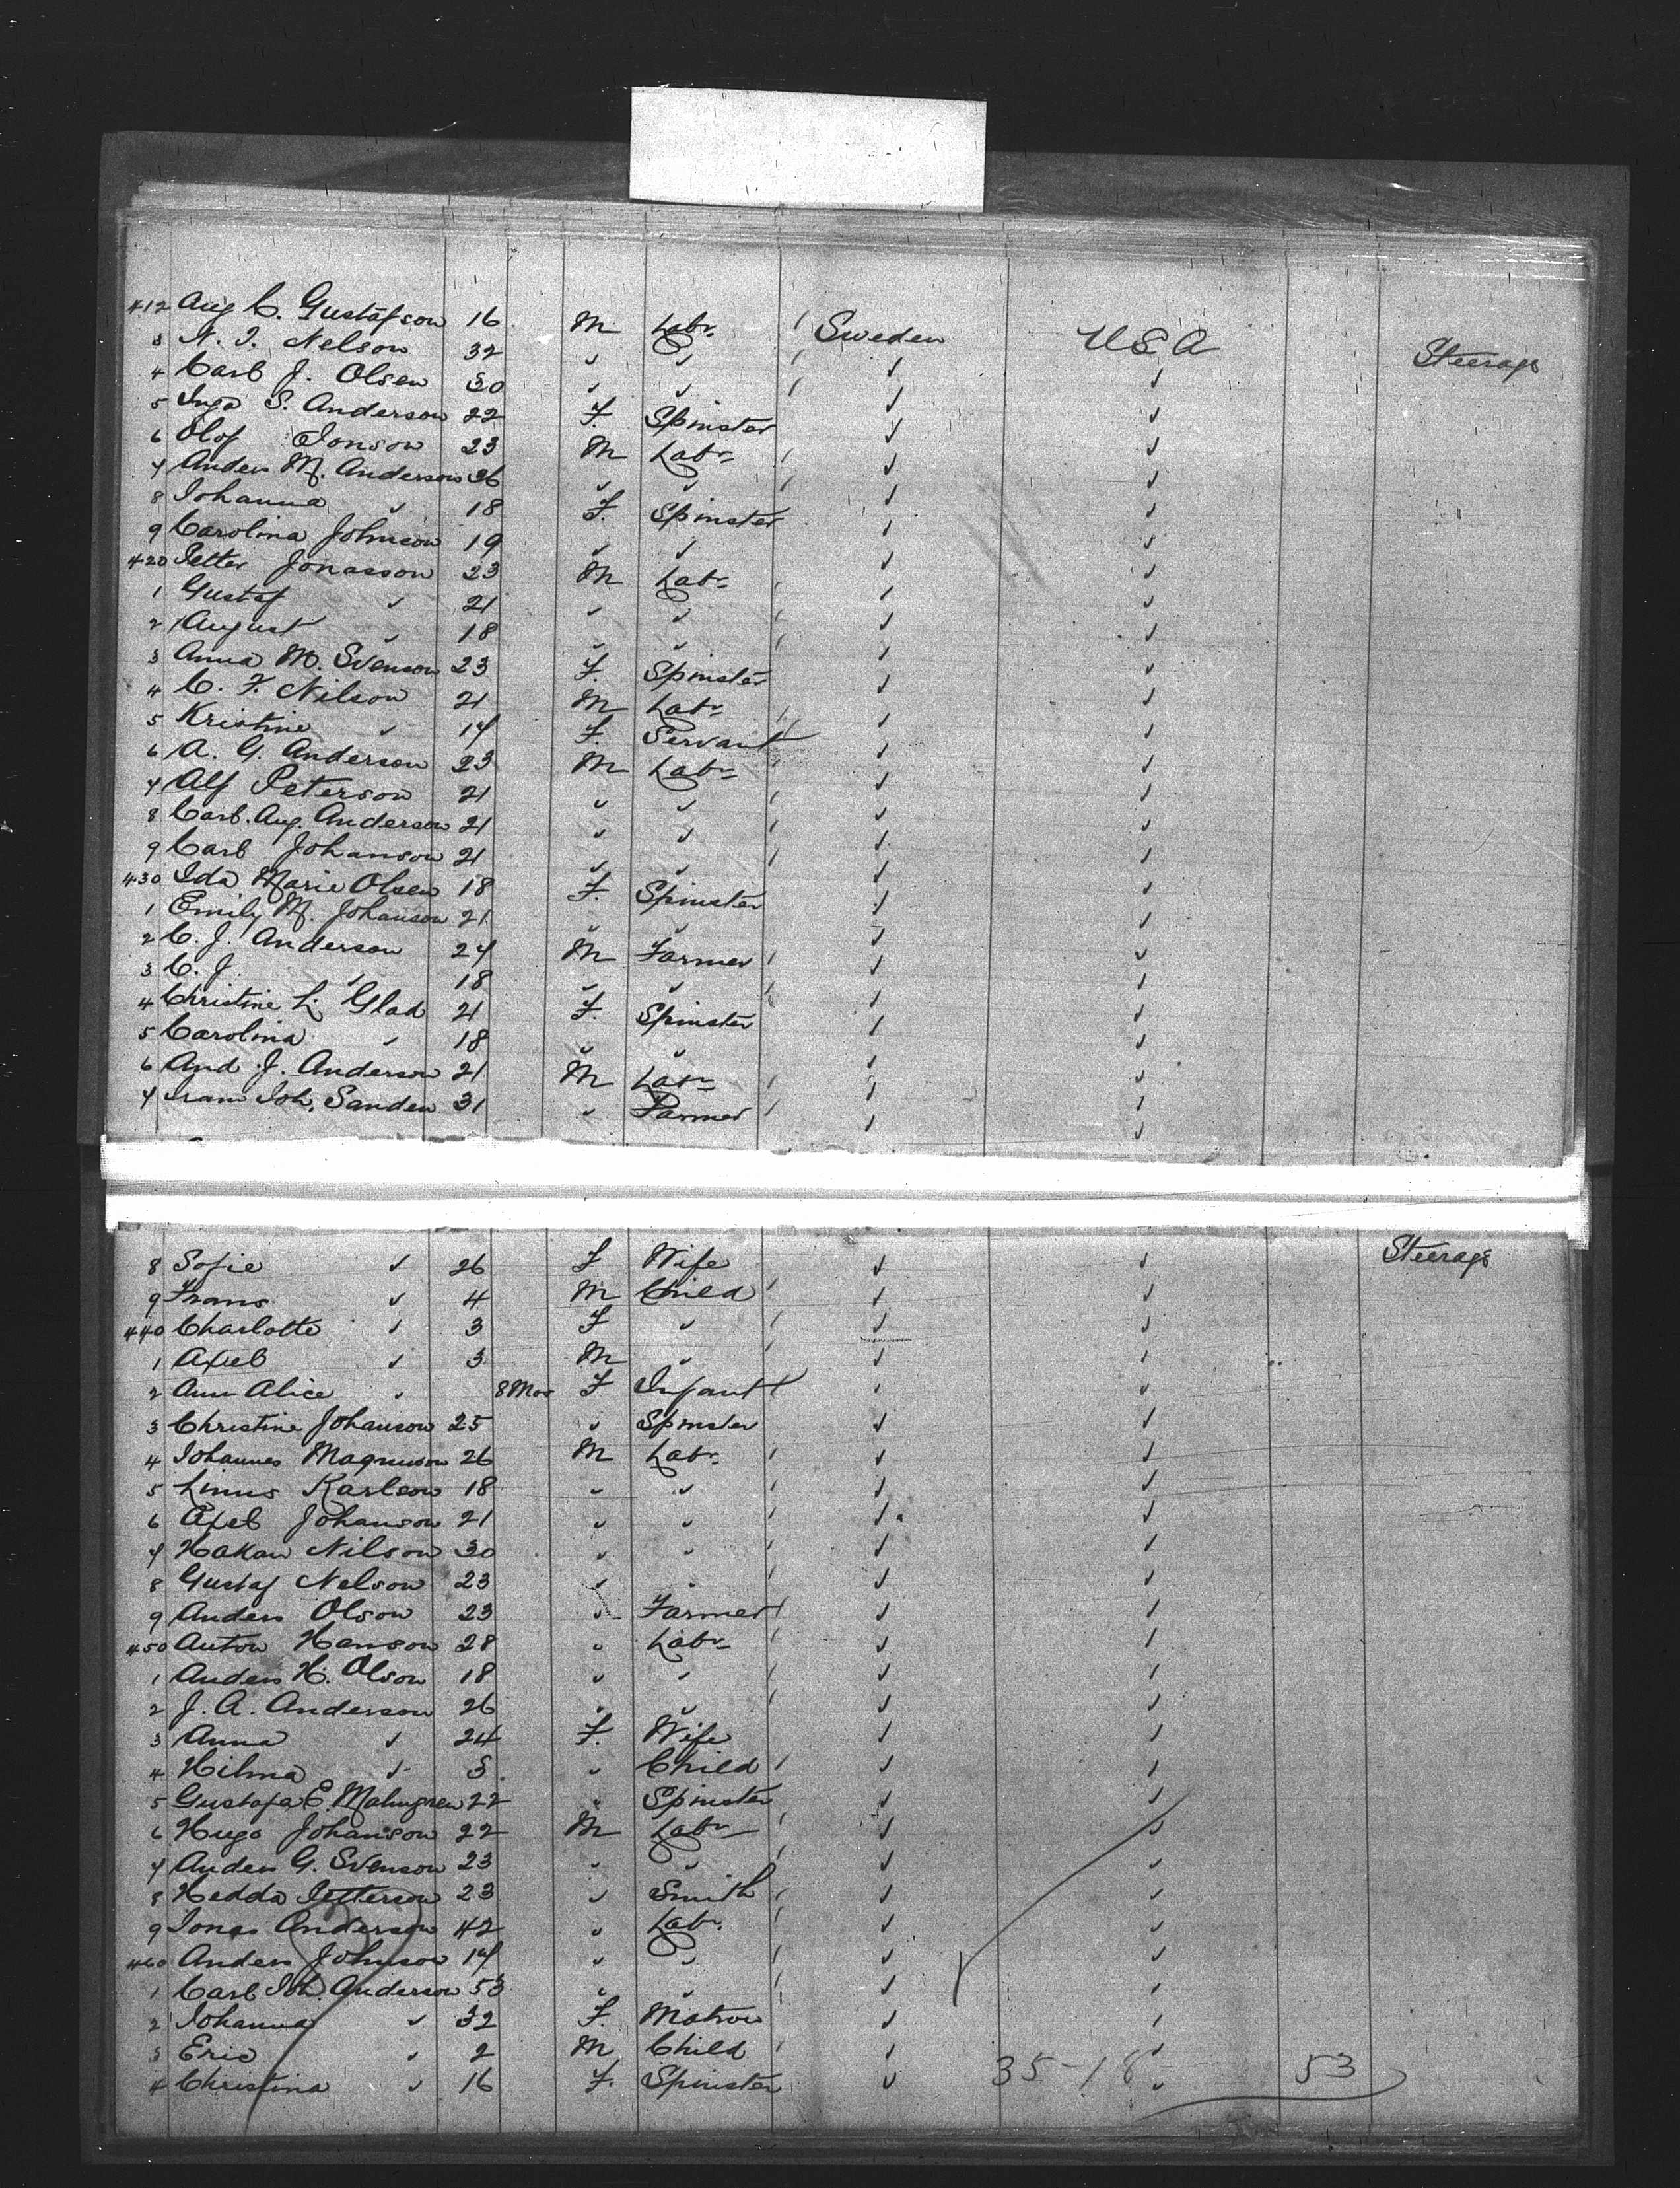 412 Aug C. Gustafson 16 M Labr Sweden USA Steerage
3 N. J. Nelson 32 " "
4 Carl J. Olsen 30 " "
5 Inga S. Anderson 22 F. Spinster
6 Olof Jonson 23 M Labr
7 Anders M. Anderson 36 " "
8 Johanna " 18 F. Spinster
9 Carolina Johnson 19 " "
420 Petter Jonasson 23 M Labr
1 Gustaf " 21 " "
2 August " 18 " "
3 Anna M. Svenson 23 F. Spinster
4 C. F. Nilson 21 M Labr
5 Kristine " 17 F. Servant
6 A. G. Anderson 23 M Labr
7 Alf Peterson 21 " "
8 Carl. Aug. Anderson 21 " "
9 Carl Johanson 21 " "
430 Ida Marie Olsen 18 F. Spinster
1 Emily M. Johanson 21 " "
2 C. J. Anderson 24 M Farmer
3 C. J. " 18 " "
4 Christine L. Glad 21 F. Spinster
5 Carolina " 18 " "
6 And. J. Anderson 21 M Labr
7 Joh. Sanden 31 " Farmer
8 Sofie " 26 F Wife " " Steerage
9 Frans " 4 M Child
440 Charlotte " 3 F "
1 Axel " 3 M "
2 Ann Alice " 8 Mos F Infant
3 Christine Johanson 25 " Spinster
4 Johannes Magnuson 26 M Labr
5 Linus Karlson 18 " "
6 Axel Johanson 21 " "
7 Hakan Nilson 30 " "
8 Gustaf Nelson 23 " "
9 Anders Olson 23 " Farmer
450 Anton Hanson 28 " Labr
1 Anders H. Olson 18 " "
2 J. A. Anderson 26 " "
3 Anna " 24 F. Wife
4 Hilma " 3 " Child
5 Gustafa E. Malmgren 22 " Spinster
6 Hugo Johanson 22 M Labr
7 Anders G. Svenson 23 " "
8 Hedda Petterson 23 " Smith
9 Jonas Anderson 42 " Labr.
460 Anders Johnson 17 " "
1 Carl Joh. Anderson 53 " "
2 Johanna " 32 F. Matron
3 Eric " 2 M Child
4 Christina " 16 F. Spinster 35-18 53